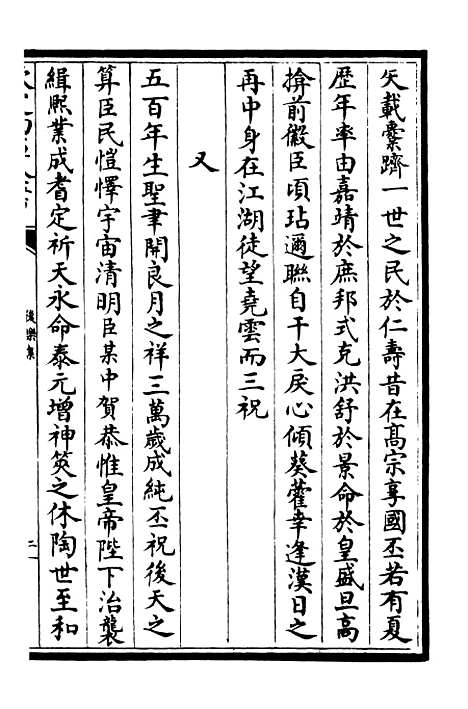 矢載櫜躋一世之民於仁壽昔在高宗享國丕若有夏
歴年率由嘉靖於庶邦式克洪舒於景命於皇盛旦高
揜前徽臣頃玷邇聯自干大戾心傾葵藿幸逢漢日之
再中身在江湖徒望堯雲而三祝
又
五百年生聖聿開良月之祥三萬歳成純丕祝後天之
算臣民愷懌宇宙清明臣某中賀恭惟皇帝陛下治襲
緝熈業成耆定祈天永命泰元增神筴之休陶世至和
後樂集